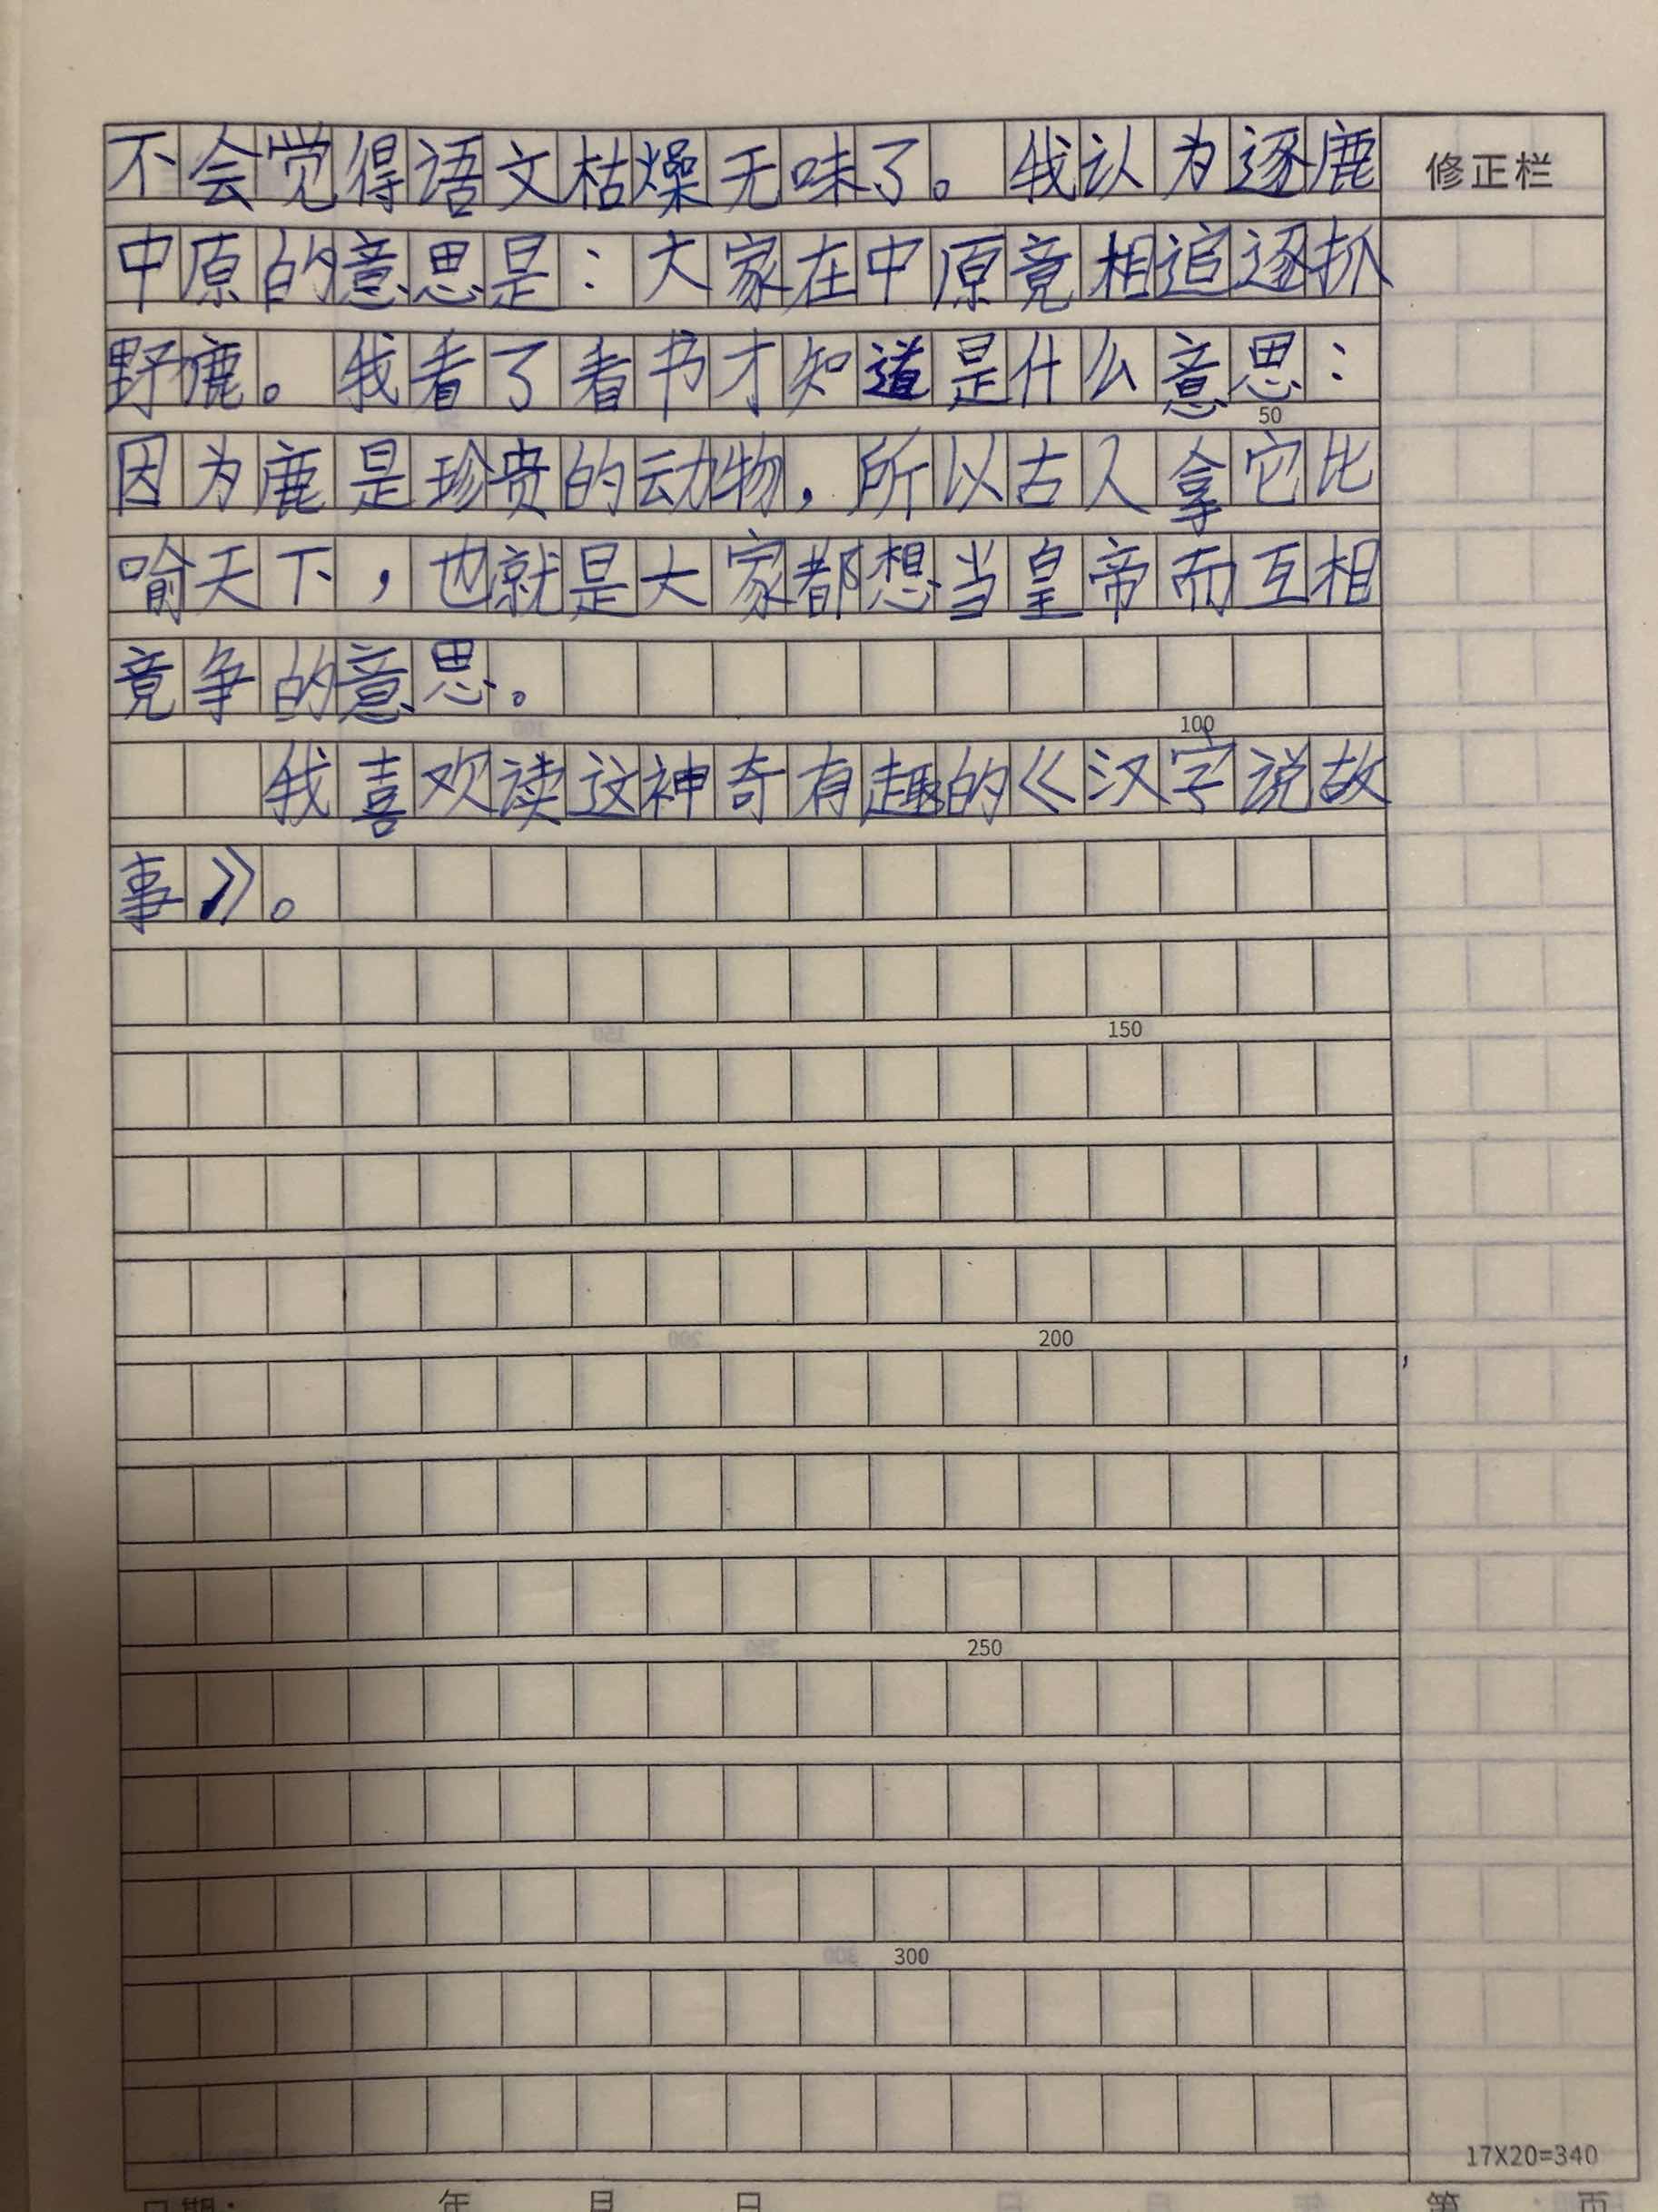 不会觉得语文枯燥无味了。我认为逐鹿
修正栏
中原的意思是：大家在中原竞相追逐抓
野鹿。我看了看书才知道是什么意思：
50
因为鹿是珍贵的动物，所以古人拿它比
喻天下，也就是大家都想当皇帝而互相
竞争的意思。
100
我喜欢读这神奇有趣的《汉字说故
事》。
150
200
250
300
17X20=340
日期： 年 月 日 第 页